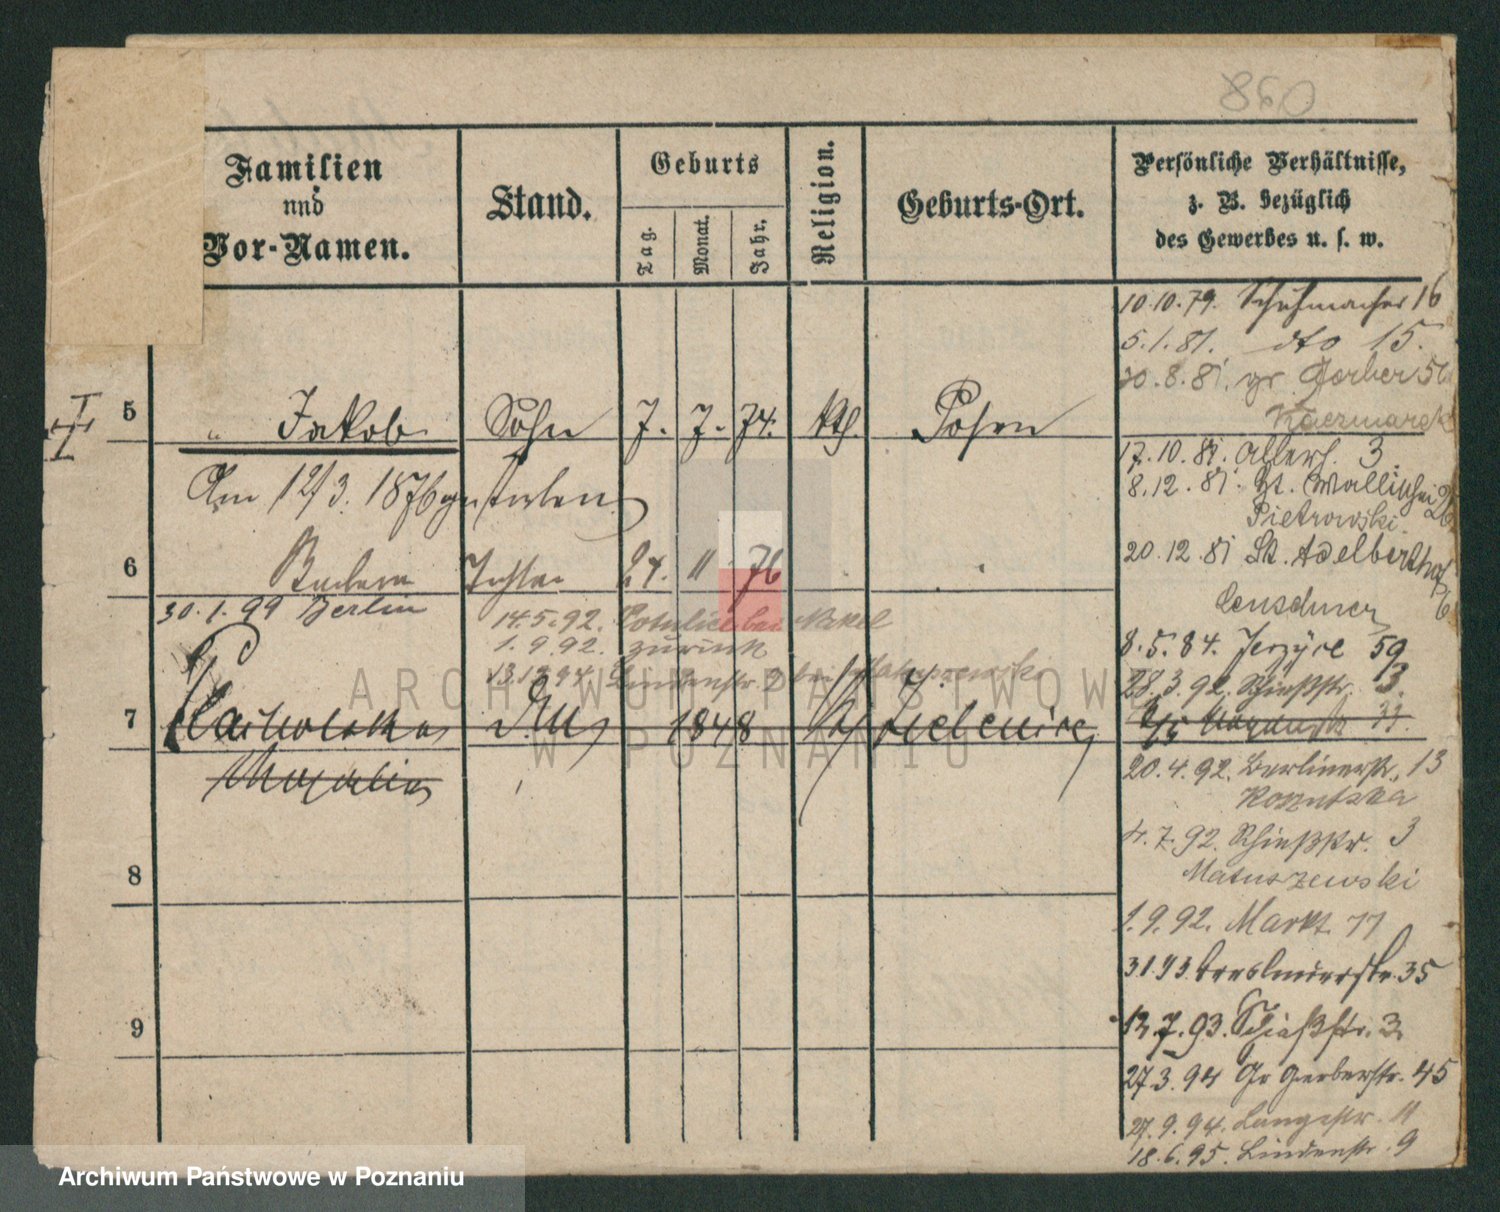 860
Familien
und
Vor-Namen.
Stand.
Geburts
Tag.
Monat.
Jahr.
Religion.
Geburts-Ort.
Persönliche Verhältnisse,
z. B. bezüglich
des Gewerbes u. s. w.
10.10.79. Schuhmacher 16
5.1.81. dto 15.
30.8.81. gr Gerber 56
Kaczmarek
5 " Jakob Sohn 7. 7. 74. kth. Posen
Am 12/3. 1876 gestorben
17.10.81. Allerh. 3
8.12.81. St. Wallischei
Pietrowski.
20.12.81 St. Adelbert
6 Tochter 24. 11 76
30.1.99 Berlin
14.5.92. bei Nekel
1.9.92. zurück
13.12.94. Lindenstr. 9 bei Matuszewski
8.5.84. Jerzyce 59
28.3.92. Schießstr. 3.
7 1848
Magdalina
20.4.92. Berlinerstr. 13
4.7.92. Schießstr. 3
Matuszewski
8
1.9.92. Markt 77
3.1.93. Breslauerstr. 35
9
12.7.93. Schießstr. 3
27.3.94 Gr Gerberstr. 45
27.9.94. Langestr. 11
18.6.95. Lindenstr. 9
ARCHIWUM PAŃSTWOWE
W POZNANIU
Archiwum Państwowe w Poznaniu